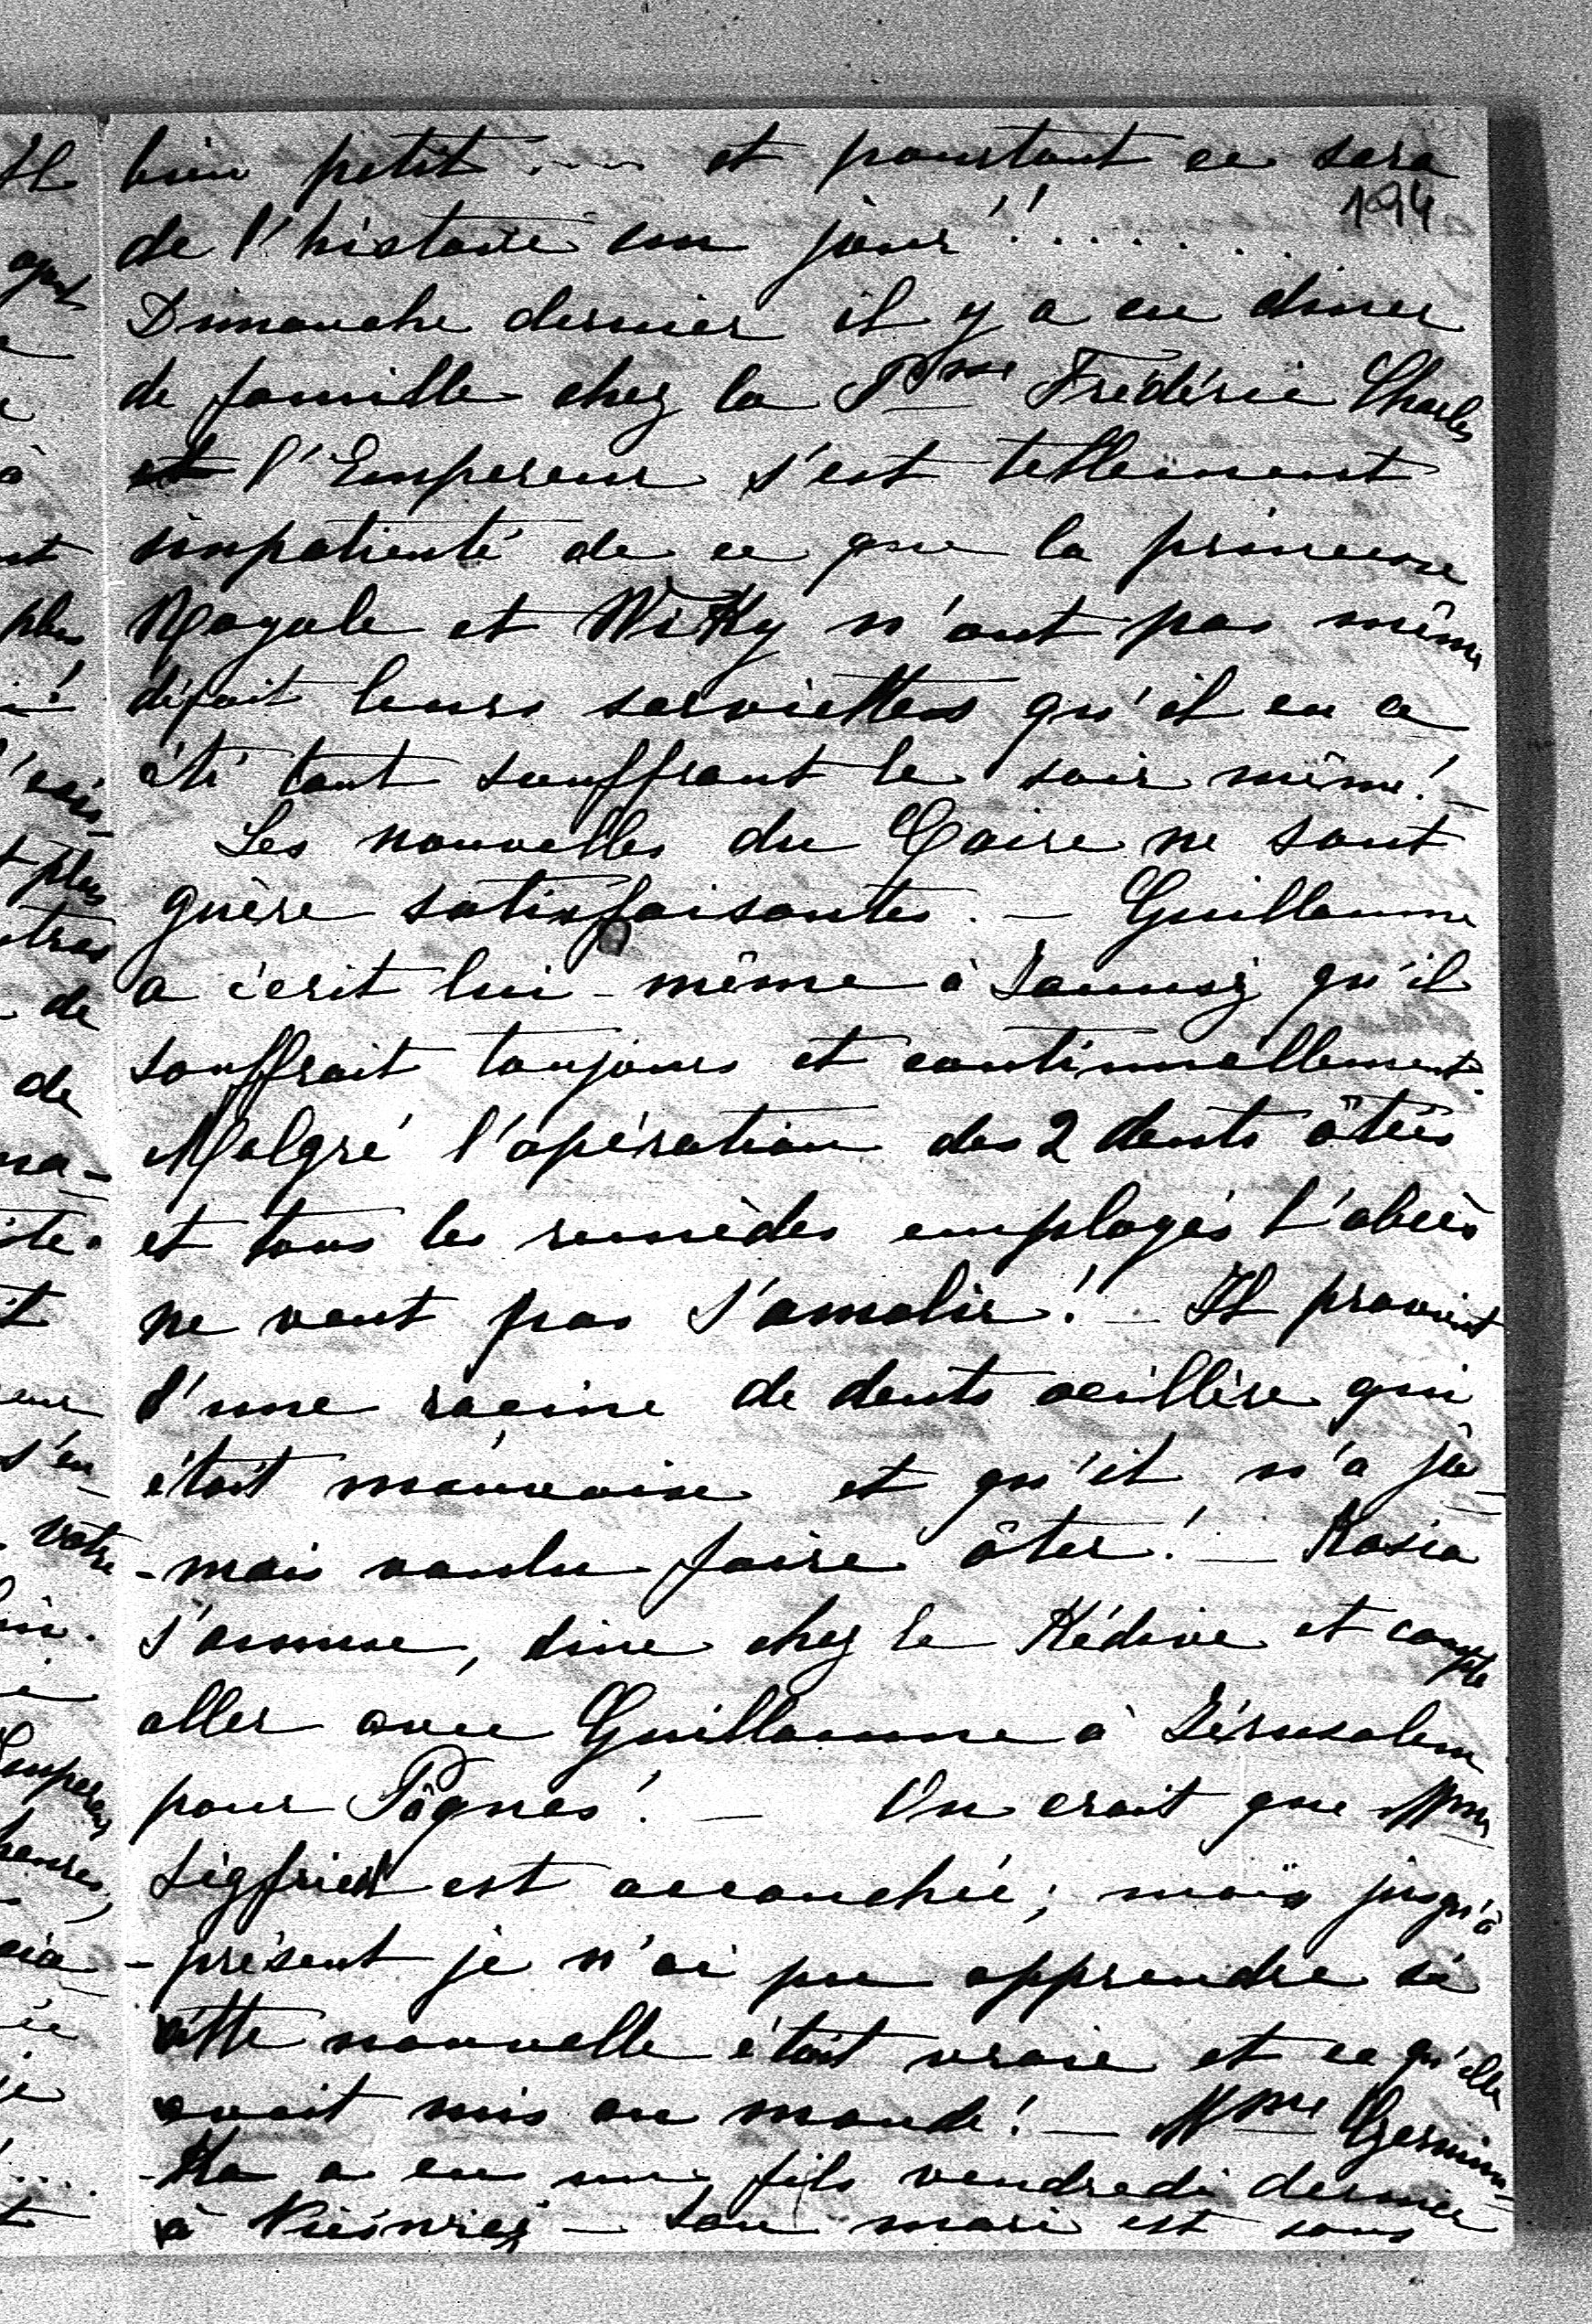 bien petit .... et pourtant ce sera
194
de l'histoire un jour!! .......
Dimanche dernier il y a eu diner
de famille chez la Psse Frédéric Charles
et l'Empereur s'est tellement
impatienté de ce que la princesse
Royale et Wikky n'ont pas même
défait leurs serviettes qu'il en a
été tout souffrant le soir même! –
Les nouvelles du Caire ne sont
guère satisfaisantes. – Guillaume
a écrit lui-même à qu'il
souffrait toujours et continuellement.
Malgré l'opération des 2 dents ôtées
et tous les remèdes employés l'abcès
ne veut pas s'amolir! – Il provient
d'une racine de dents oeillère qui
était mauvaise et qu'il n'a ja-
-mais voulu faire ôter! – Kasia
s'amuse, dine chez le Kédive et compte
aller avec Guillaume à Jérusalem
pour Pâques! – On croit que Mme
Sigfried est accouchée; mais jusqu'à
-présent je n'ai pu apprendre si
cette nouvelle était vraie et ce qu'elle
avait mis au monde! – Mme
a eu un fils vendredi dernier
à – son mari est sous